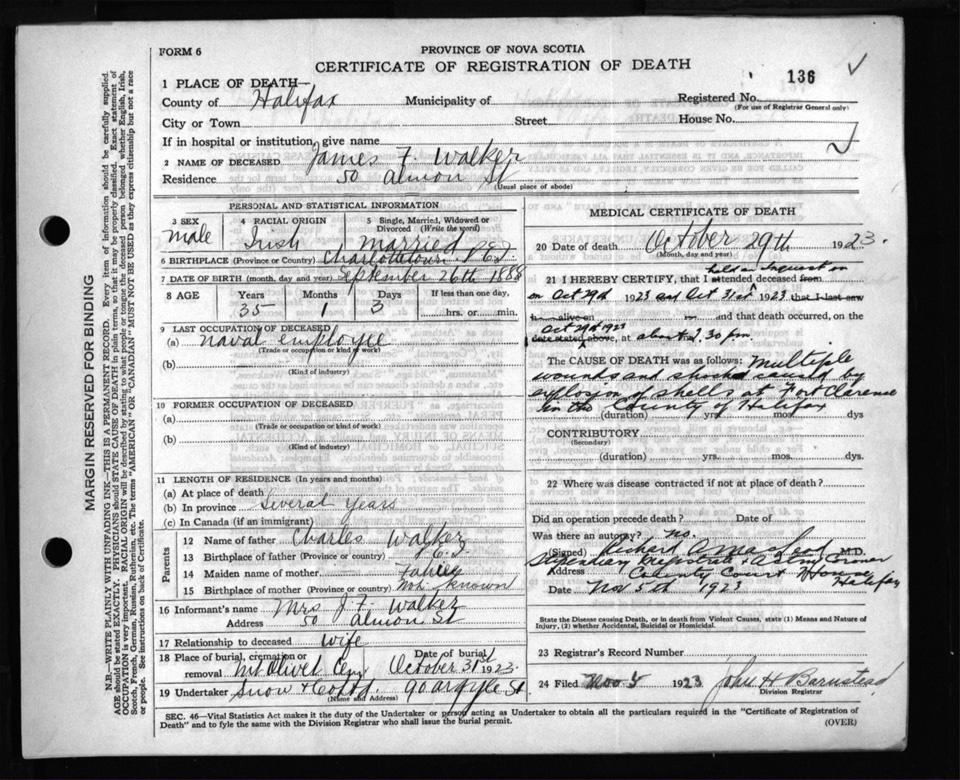 FORM 6
PROVINCE OF NOVA SCOTIA
CERTIFICATE OF REGISTRATION OF DEATH
136
1 PLACE OF DEATH—
County of Halifax Municipality of Registered No.
(For use of Registrar General only)
City or Town Street House No.
If in hospital or institution, give name
2 NAME OF DECEASED James F. Walker
Residence 50 Almon St
(Usual place of abode)
PERSONAL AND STATISTICAL INFORMATION
3 SEX Male
4 RACIAL ORIGIN Irish
5 Single, Married, Widowed or Divorced (Write the word) Married
6 BIRTHPLACE (Province or Country) Charlottetown P.E.I.
7 DATE OF BIRTH (month, day and year) September 26th 1888
8 AGE Years Months Days If less than one day,
35 1 3 ......hrs. or......min.
9 LAST OCCUPATION OF DECEASED
(a) Naval employee
(Trade or occupation or kind of work)
(b)
(Kind of industry)
10 FORMER OCCUPATION OF DECEASED
(a)
(Trade or occupation or kind of work)
(b)
(Kind of industry)
11 LENGTH OF RESIDENCE (In years and months)
(a) At place of death
(b) In province Several Years
(c) In Canada (if an immigrant)
Parents
12 Name of father Charles Walker
13 Birthplace of father (Province or country) P.E.I.
14 Maiden name of mother
15 Birthplace of mother (Province or country) Not known
16 Informant's name Mrs J. F. Walker
Address 50 Almon St
17 Relationship to deceased Wife
18 Place of burial, cremation or removal Mt Olivet Cemy Date of burial October 31st 1923.
19 Undertaker Snow & Co Ltd. 90 Argyle St
(Name and Address)
MEDICAL CERTIFICATE OF DEATH
20 Date of death October 29th 1923.
(Month, day and year)
21 I HEREBY CERTIFY, that I held an Inquest on attended deceased from
on Oct 29th 1923 and Oct 31st 1923 that I last saw
h alive on and that death occurred, on
Oct 29th 1923
date stated above, at about 2.30 pm
The CAUSE OF DEATH was as follows: Multiple
wounds and shock caused by
explosion of shell at Fort Clarence
in the County of Halifax
(duration) yrs. mos. dys
CONTRIBUTORY
(Secondary)
(duration) yrs. mos. dys
22 Where was disease contracted if not at place of death?
Did an operation precede death? Date of
Was there an autopsy? no.
(Signed) Richard M.D.
Stipendiary Magistrate & Acting Coroner
Address County Court House
Halifax
Date Nov 5th 1923
State the Disease causing Death, or in death from Violent Causes, state (1) Means and Nature of Injury, (2) whether Accidental, Suicidal or Homicidal.
23 Registrar's Record Number
24 Filed Nov 5 1923 John H Barnstead
Division Registrar
SEC. 46—Vital Statistics Act makes it the duty of the Undertaker or person acting as Undertaker to obtain all the particulars required in the "Certificate of Registration of
Death" and to fyle the same with the Division Registrar who shall issue the burial permit. (OVER)
MARGIN RESERVED FOR BINDING
N.B.—WRITE PLAINLY WITH UNFADING INK—THIS IS A PERMANENT RECORD. Every item of information should be carefully supplied.
AGE should be stated EXACTLY. PHYSICIANS should STATE CAUSE OF DEATH in plain terms, so that it may be properly classified. Exact statement of
OCCUPATION is very important. RACIAL ORIGIN will be described by stating to what people or tongue the deceased person belonged whether English, Irish,
Scotch, French, German, Russian, Ruthenian, etc. The terms "AMERICAN" OR "CANADIAN" MUST NOT BE USED as they express citizenship but not a race
or people. See instructions on back of Certificate.